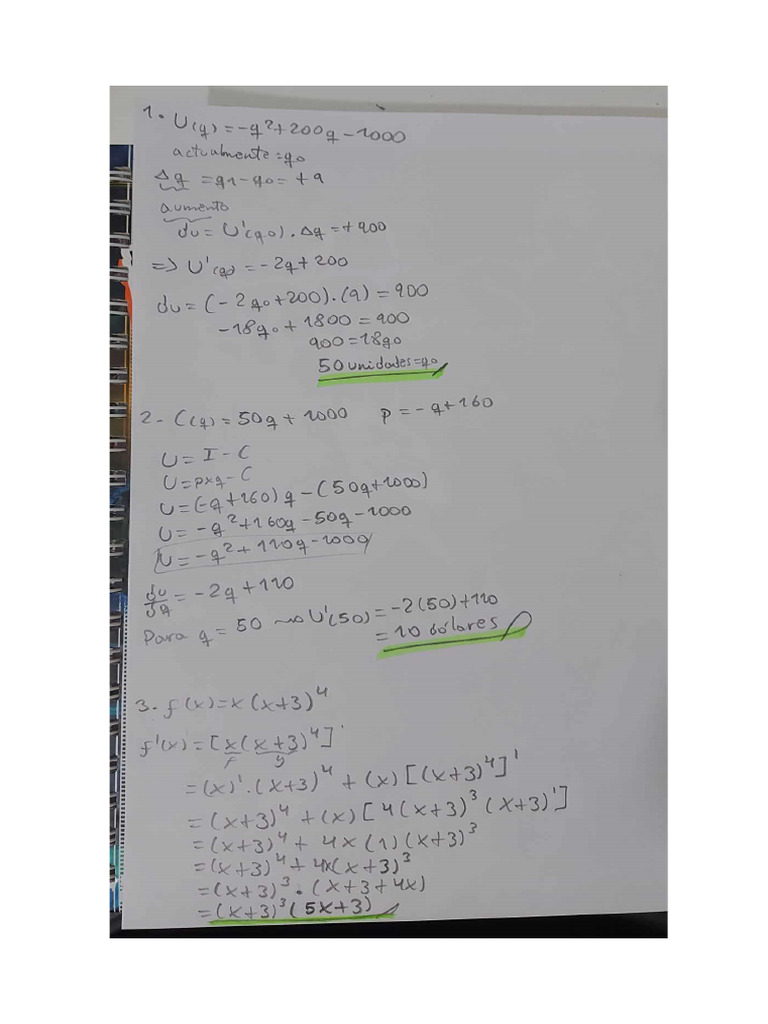 1. U(q) = -q²+200q-1000
actualmente = q0
Δq = q1-q0 = +9
aumento
du = U'(q0) . Δq = +900
=> U'(q) = -2q+200
du = (-2q0+200).(9) = 900
-18q0 + 1800 = 900
900 = 18q0
50 unidades = q0
2- C(q) = 50q + 1000 p = -q+160
U = I - C
U = pxq - C
U = (-q+160)q - (50q+1000)
U = -q²+160q-50q-1000
U = -q²+110q-1000
du/dq = -2q+110
Para q = 50 → U'(50) = -2(50)+110
= 10 dólares
3- f(x)=x(x+3)⁴
f'(x) = [x(x+3)⁴]'
f g
= (x)'.(x+3)⁴ + (x)[(x+3)⁴]'
= (x+3)⁴ + (x)[4(x+3)³(x+3)']
= (x+3)⁴ + 4x(1)(x+3)³
= (x+3)⁴ + 4x(x+3)³
= (x+3)³ . (x+3+4x)
= (x+3)³(5x+3)